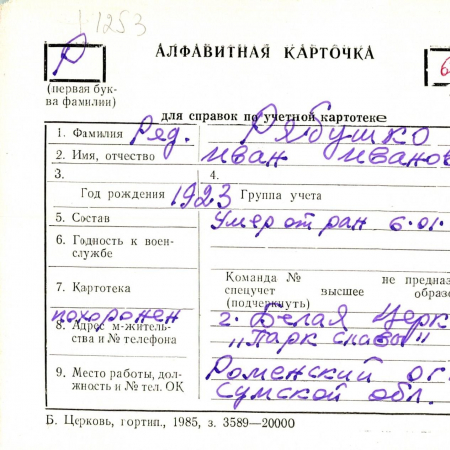 1253
Р
АЛФАВИТНАЯ КАРТОЧКА
6
(первая бук-
ва фамилии)
для справок по учетной картотеке
1. Фамилия Ряд. Рябушко
2. Имя, отчество Иван Иванов
3. 4.
Год рождения 1923 Группа учета
5. Состав Умер от ран 6.01.
6. Годность к воен-
службе
Команда № не предназ
7. Картотека спецучет высшее образо
(подчеркнуть)
похоронен г. Белая Церк
8. Адрес м-житель-
ства и № телефона „Парк славы"
9. Место работы, дол-
жность и № тел. ОК
Роменский ог.
Сумской обл.
Б. Церковь, гортип., 1985, з. 3589—20000